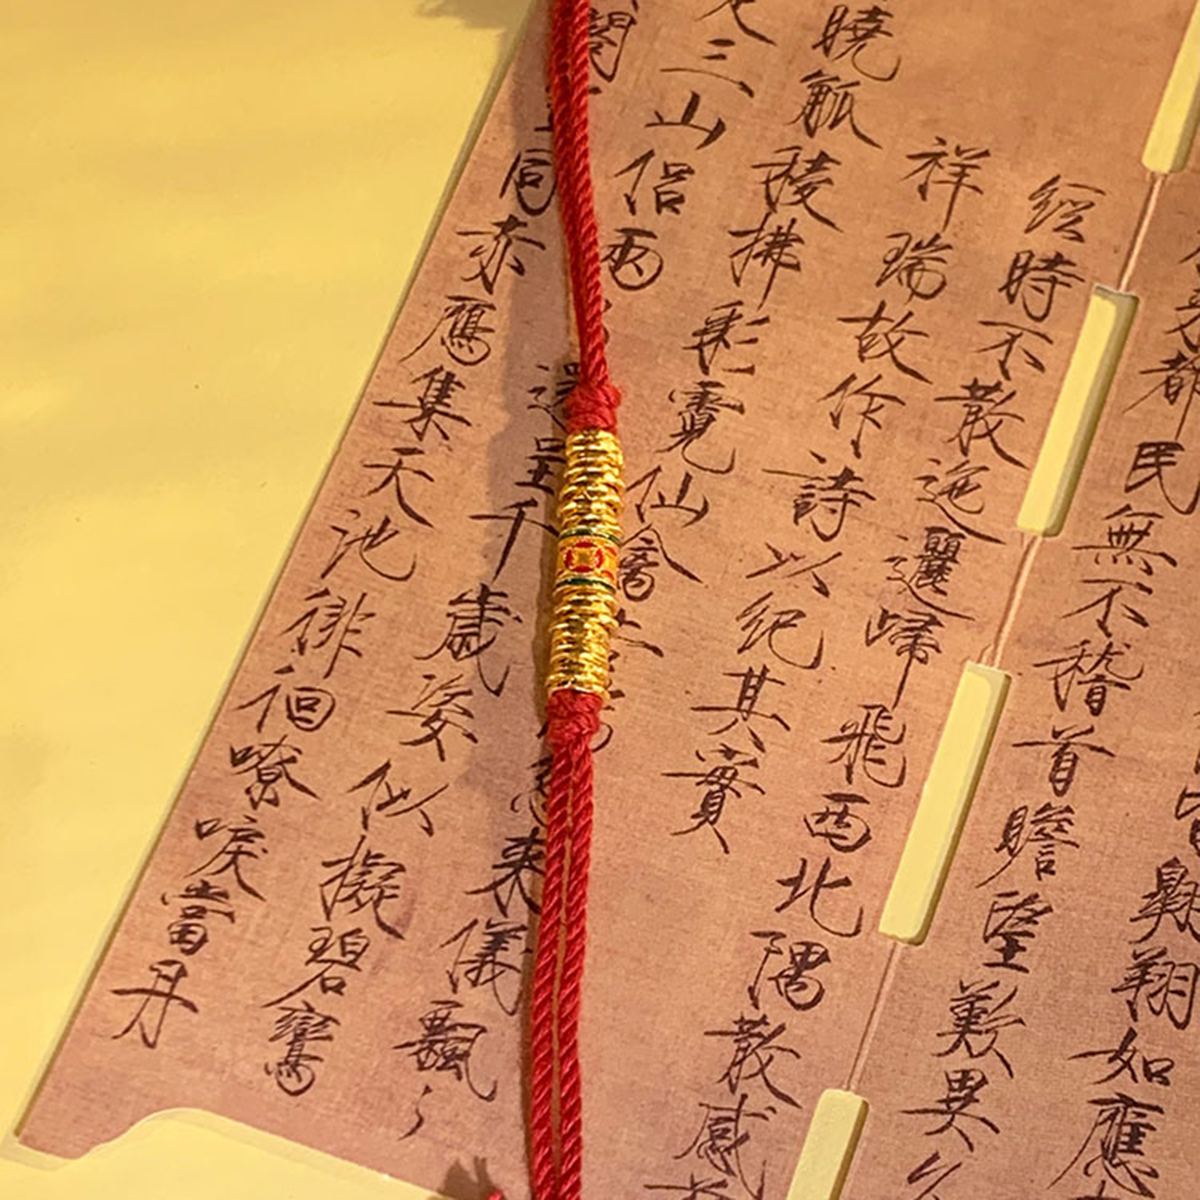 翱翔如應
都民無不稽首瞻望歎異久
經時不散迤邐歸飛西北隅散感
祥瑞故作詩以紀其實
曉觚稜拂彩霓仙禽來儀飄〻
三山侶兩〻還呈千歲姿似擬碧鸞
閣同赤鴈集天池徘徊嘹唳當丹